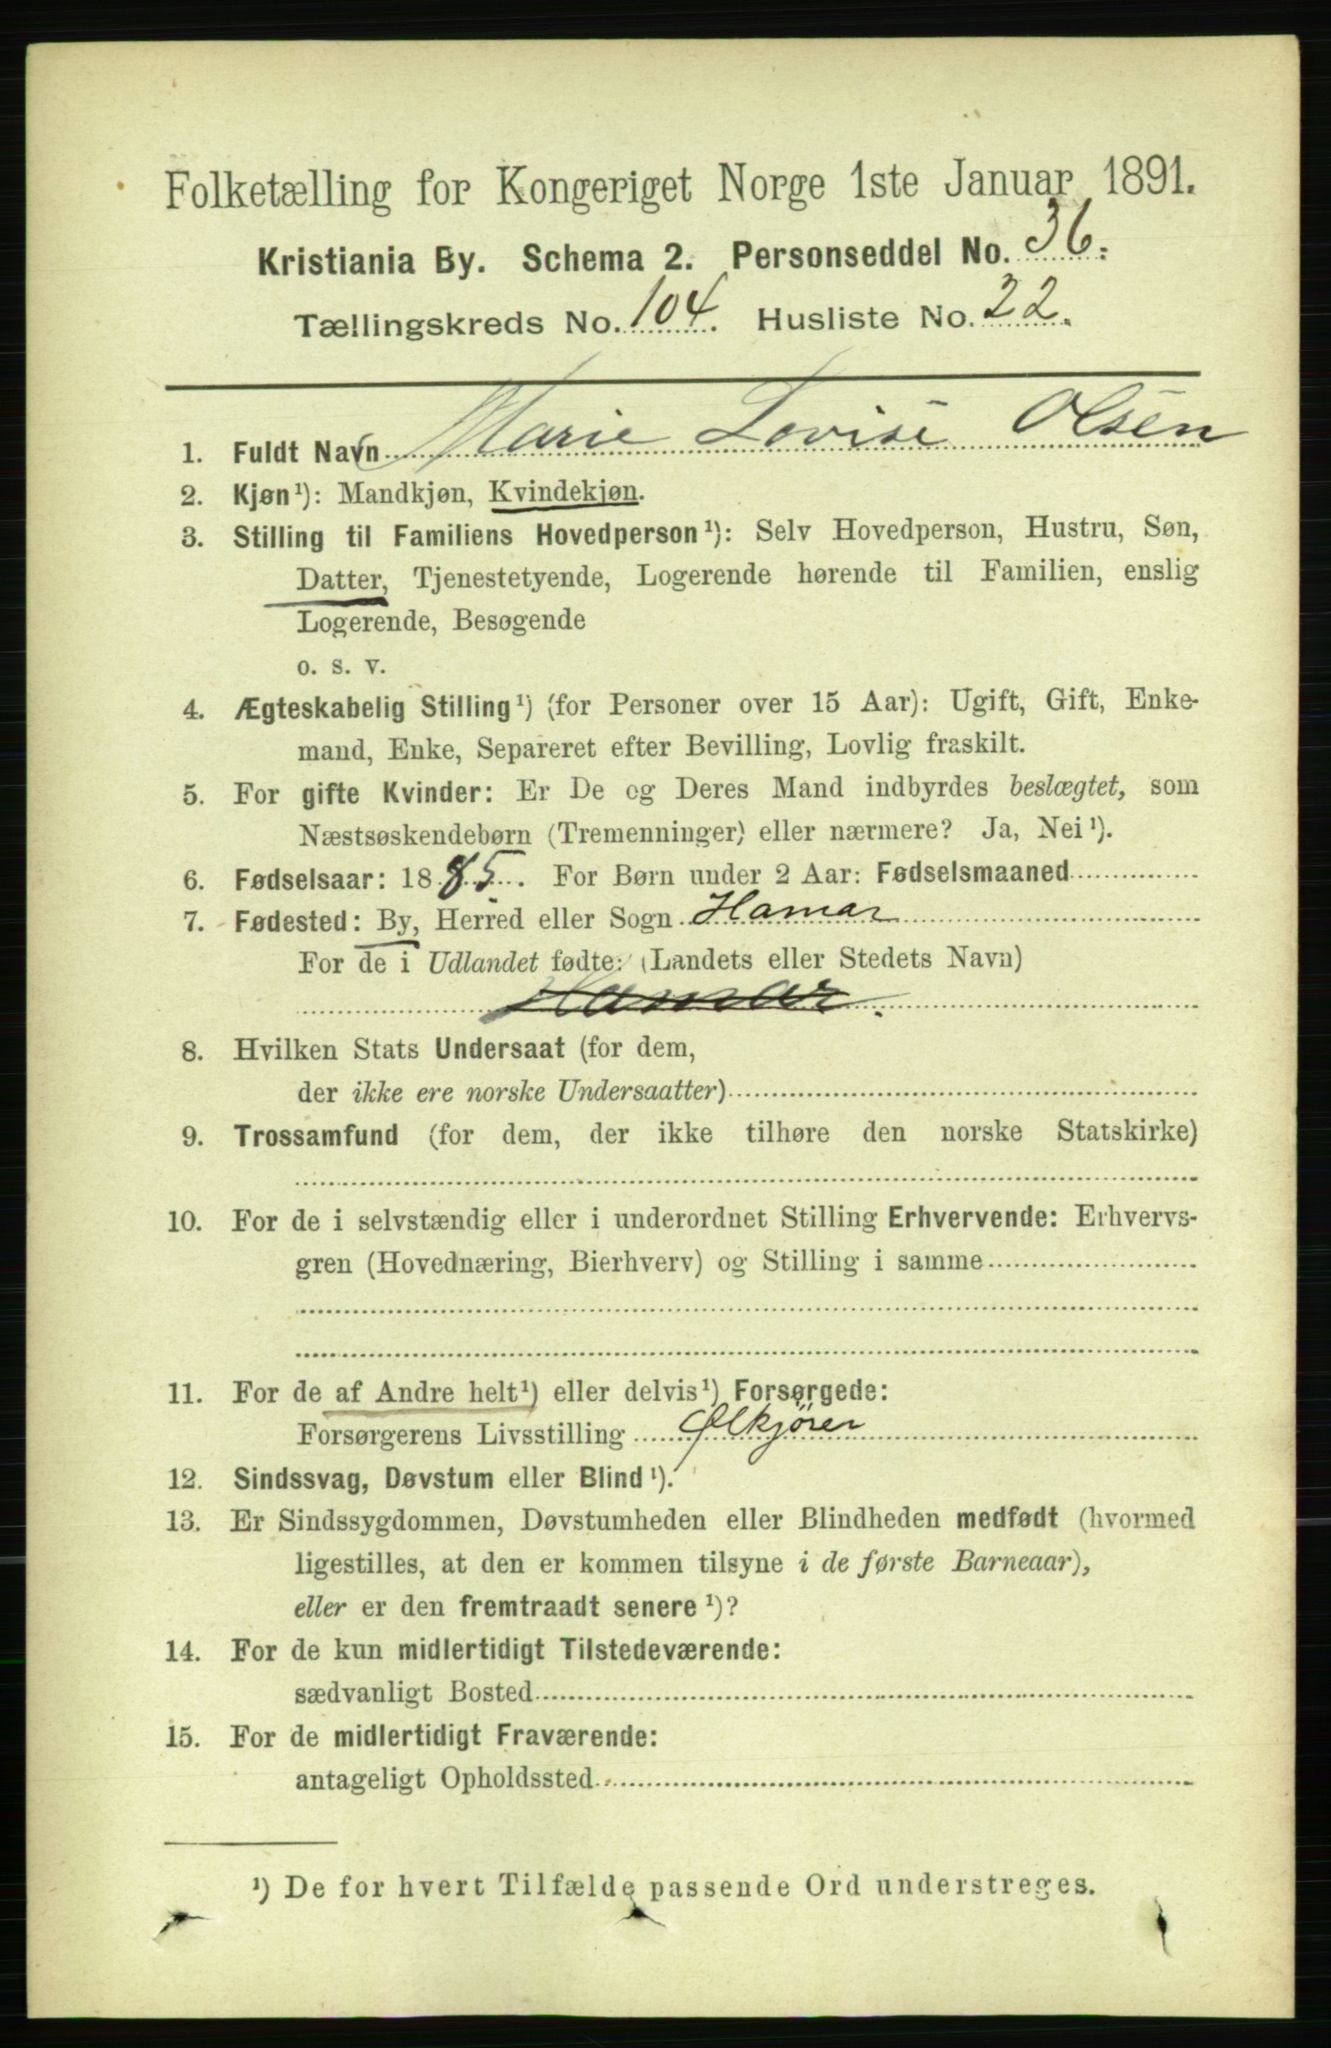 Folketælling for Kongeriget Norge 1ste Januar 1891.
Kristiania By. Schema 2. Personseddel No. 36.
Tællingskreds No. 104. Husliste No. 22.
1. Fuldt Navn Marie Lovise Olsen
2. Kjøn¹): Mandkjøn, Kvindekjøn.
3. Stilling til Familiens Hovedperson¹): Selv Hovedperson, Hustru, Søn,
Datter, Tjenestetyende, Logerende hørende til Familien, enslig
Logerende, Besøgende
o. s. v.
4. Ægteskabelig Stilling¹) (for Personer over 15 Aar): Ugift, Gift, Enke-
mand, Enke, Separeret efter Bevilling, Lovlig fraskilt.
5. For gifte Kvinder: Er De og Deres Mand indbyrdes beslægtet, som
Næstsøskendebørn (Tremenninger) eller nærmere? Ja, Nei¹).
6. Fødselsaar: 1885. For Børn under 2 Aar: Fødselsmaaned
7. Fødested: By, Herred eller Sogn Hamar
For de i Udlandet fødte: (Landets eller Stedets Navn)
Hamar.
8. Hvilken Stats Undersaat (for dem,
der ikke ere norske Undersaatter)
9. Trossamfund (for dem, der ikke tilhøre den norske Statskirke)
10. For de i selvstændig eller i underordnet Stilling Erhvervende: Erhvervs-
gren (Hovednæring, Bierhverv) og Stilling i samme
11. For de af Andre helt¹) eller delvis¹) Forsørgede:
Forsørgerens Livsstilling Ølkjører
12. Sindssvag, Døvstum eller Blind¹).
13. Er Sindssygdommen, Døvstumheden eller Blindheden medfødt (hvormed
ligestilles, at den er kommen tilsyne i de første Barneaar),
eller er den fremtraadt senere¹)?
14. For de kun midlertidigt Tilstedeværende:
sædvanligt Bosted
15. For de midlertidigt Fraværende:
antageligt Opholdssted
¹) De for hvert Tilfælde passende Ord understreges.